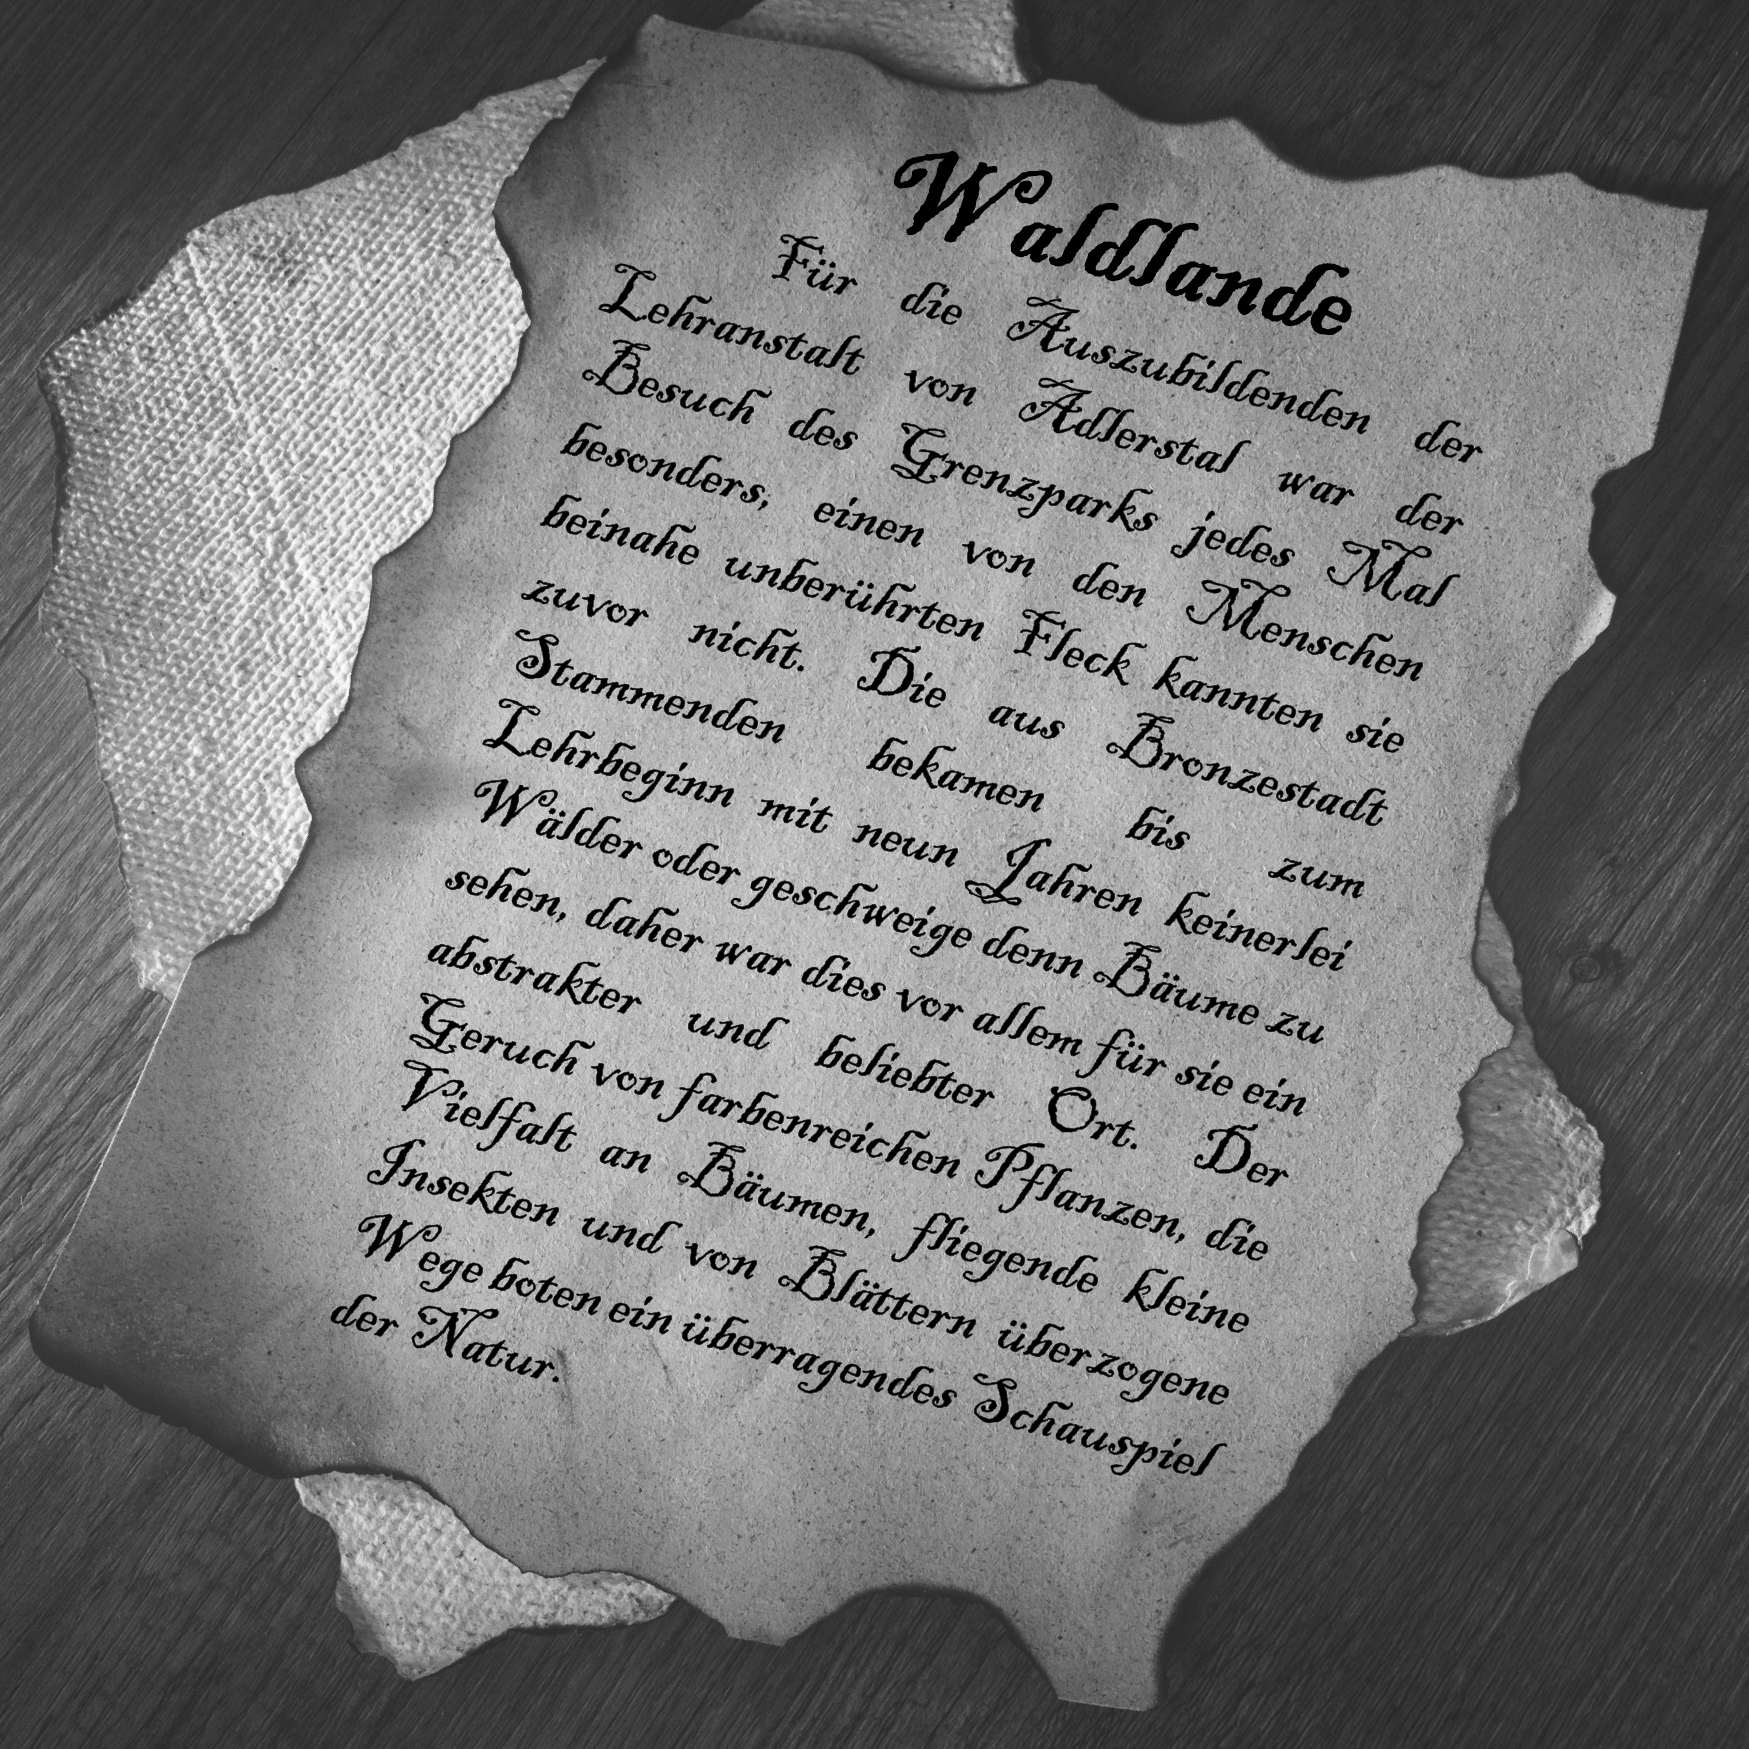 Waldlande
Für die Auszubildenden der
Lehranstalt von Adlerstal war der
Besuch des Grenzparks jedes Mal
besonders; einen von den Menschen
beinahe unberührten Fleck kannten sie
zuvor nicht. Die aus Bronzestadt
Stammenden bekamen bis zum
Lehrbeginn mit neun Jahren keinerlei
Wälder oder geschweige denn Bäume zu
sehen, daher war dies vor allem für sie ein
abstrakter und beliebter Ort. Der
Geruch von farbenreichen Pflanzen, die
Vielfalt an Bäumen, fliegende kleine
Insekten und von Blättern überzogene
Wege boten ein überragendes Schauspiel
der Natur.